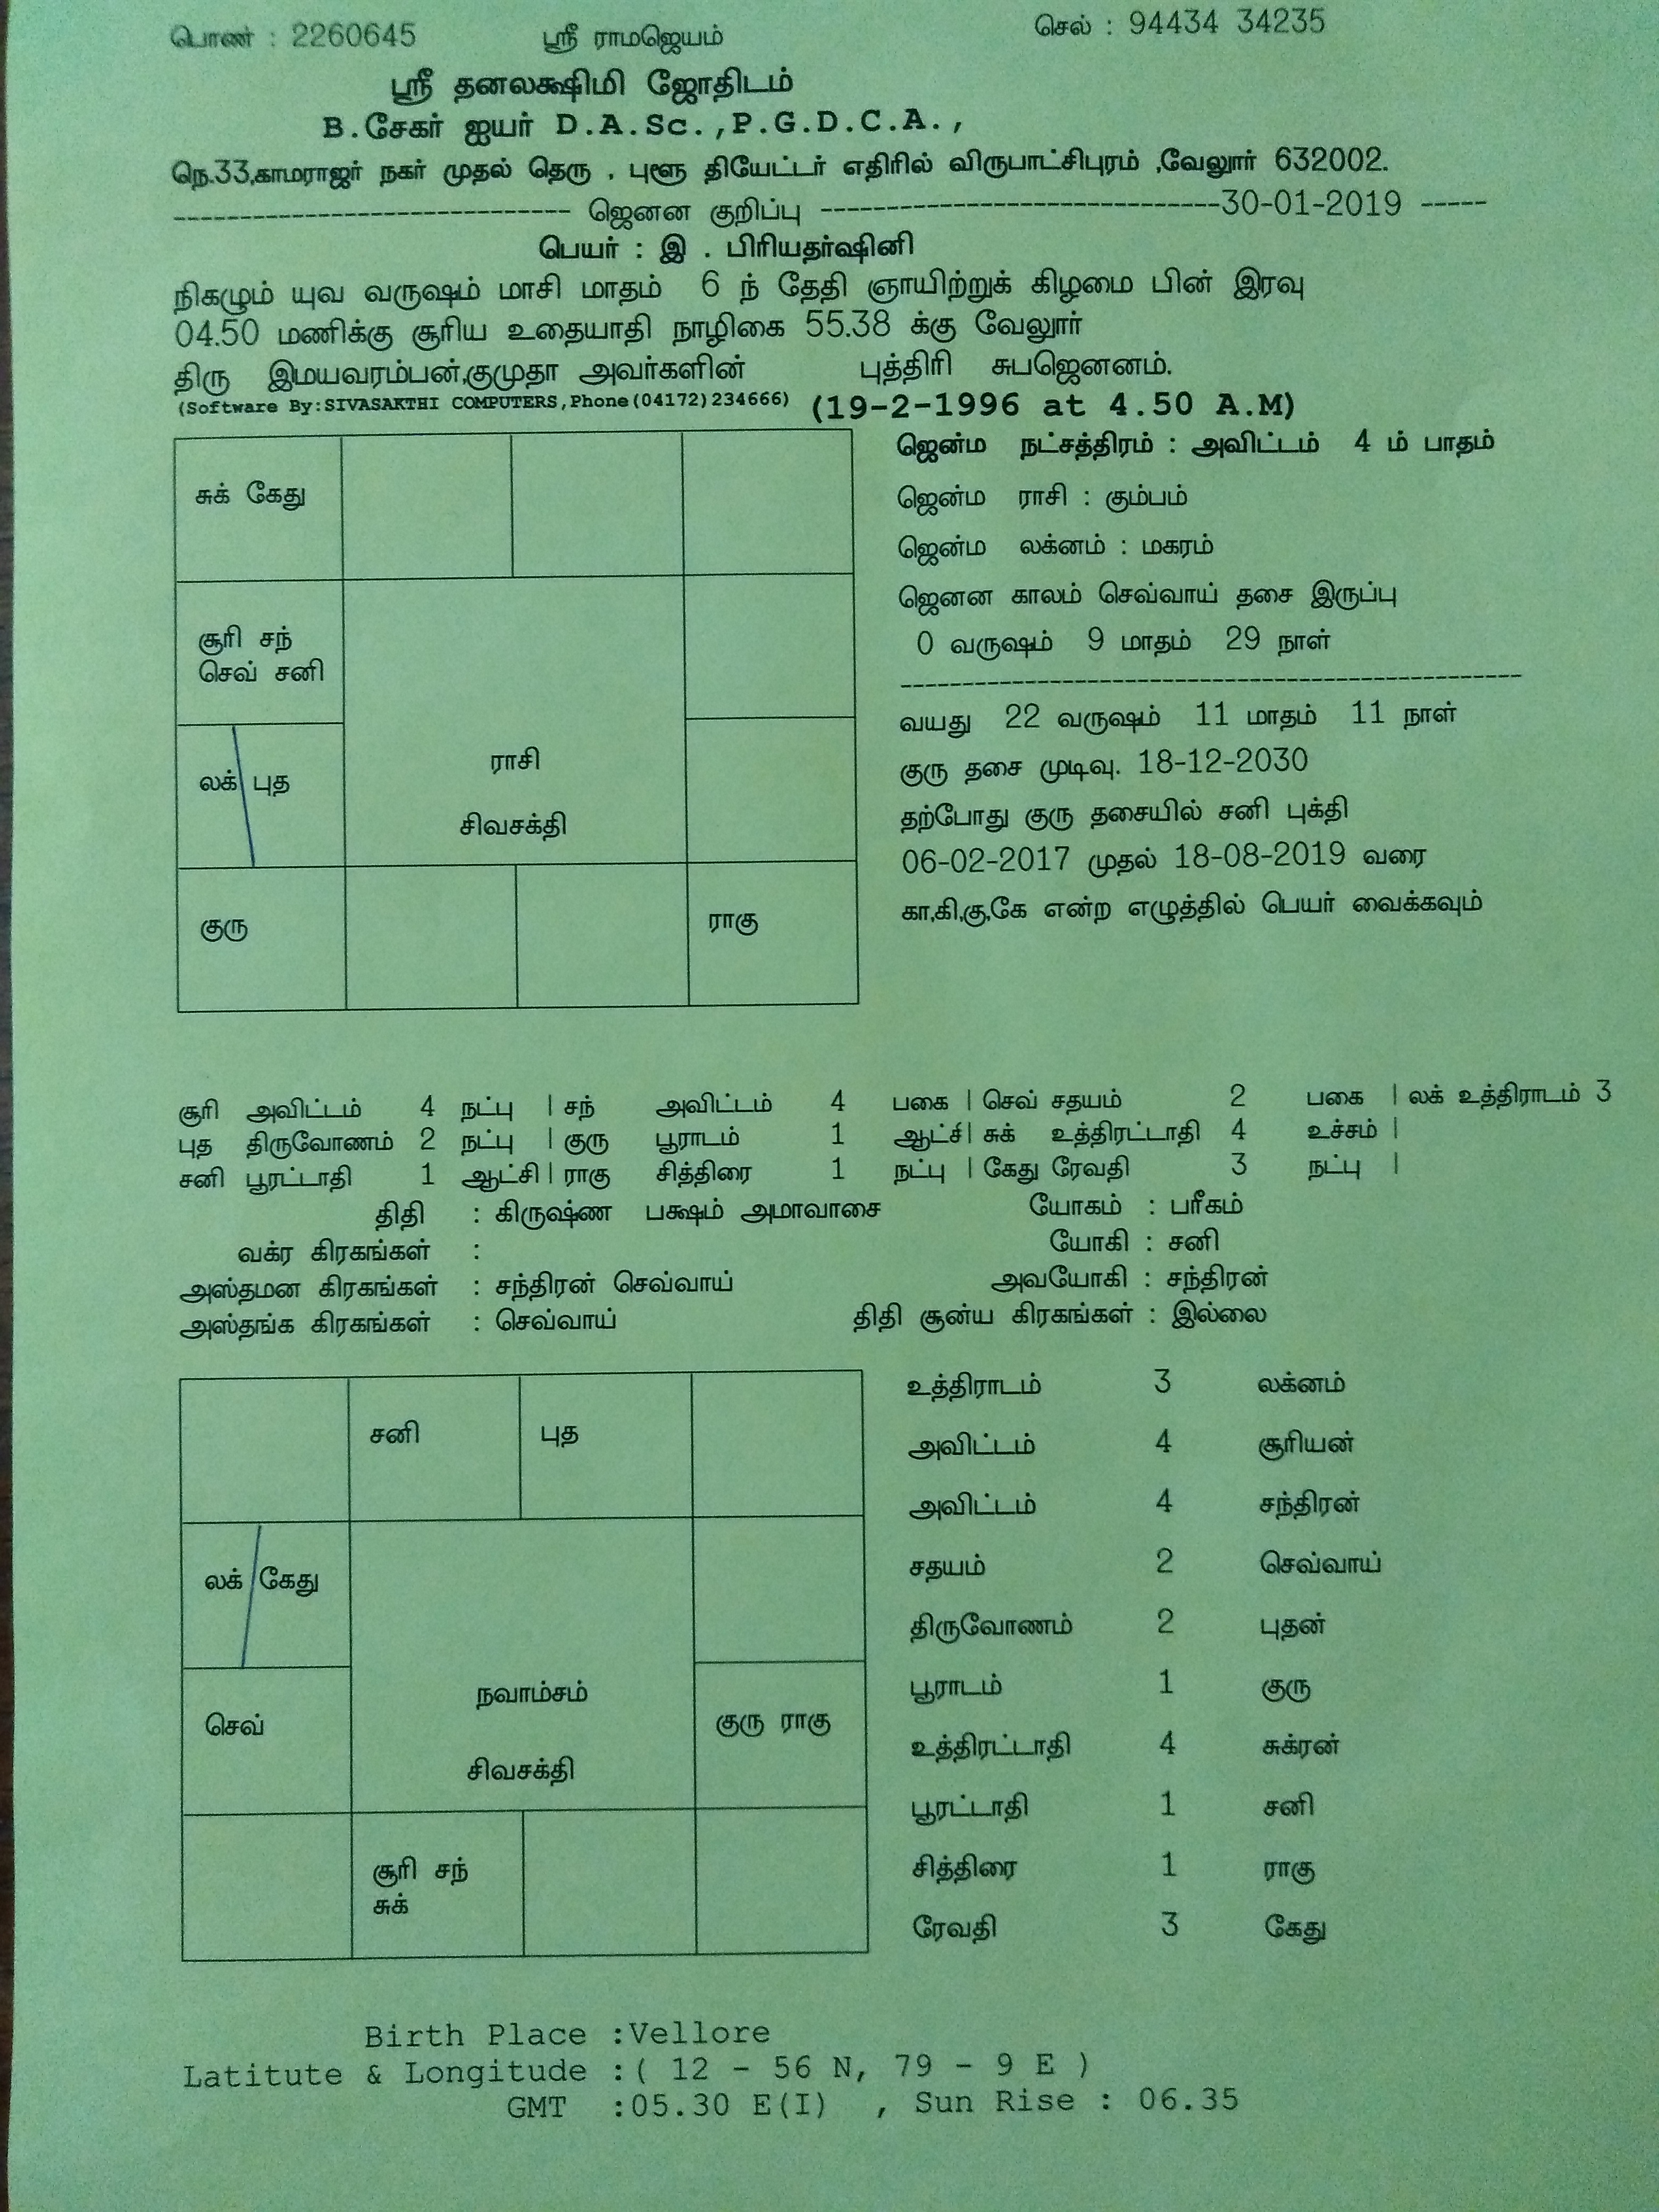 பொண் : 2260645 ஸ்ரீ ராமஜெயம் செல் : 94434 34235
ஸ்ரீ தனலக்ஷிமி ஜோதிடம்
B.சேகர் ஐயர் D.A.Sc.,P.G.D.C.A.,
நெ.33,காமராஜர் நகர் முதல் தெரு . புளூ தியேட்டர் எதிரில் விருபாட்சிபுரம் ,வேலூர் 632002.
------------------------------ ஜெனன குறிப்பு ------------------------------30-01-2019 -----
பெயர் : இ . பிரியதர்ஷினி
நிகழும் யுவ வருஷம் மாசி மாதம் 6 ந் தேதி ஞாயிற்றுக் கிழமை பின் இரவு
04.50 மணிக்கு சூரிய உதையாதி நாழிகை 55.38 க்கு வேலூர்
திரு இமயவரம்பன்,குமுதா அவர்களின் புத்திரி சுபஜெனனம்.
(Software By:SIVASAKTHI COMPUTERS,Phone(04172)234666) (19-2-1996 at 4.50 A.M)
சுக் கேது
சூரி சந்
செவ் சனி
லக் புத
ராசி
சிவசக்தி
குரு
ராகு
ஜென்ம நட்சத்திரம் : அவிட்டம் 4 ம் பாதம்
ஜென்ம ராசி : கும்பம்
ஜென்ம லக்னம் : மகரம்
ஜெனன காலம் செவ்வாய் தசை இருப்பு
0 வருஷம் 9 மாதம் 29 நாள்
--------------------------------------------------
வயது 22 வருஷம் 11 மாதம் 11 நாள்
குரு தசை முடிவு. 18-12-2030
தற்போது குரு தசையில் சனி புக்தி
06-02-2017 முதல் 18-08-2019 வரை
கா,கி,கு,கே என்ற எழுத்தில் பெயர் வைக்கவும்
சூரி அவிட்டம் 4 நட்பு | சந் அவிட்டம் 4 பகை | செவ் சதயம் 2 பகை | லக் உத்திராடம் 3
புத திருவோணம் 2 நட்பு | குரு பூராடம் 1 ஆட்சி| சுக் உத்திரட்டாதி 4 உச்சம் |
சனி பூரட்டாதி 1 ஆட்சி| ராகு சித்திரை 1 நட்பு | கேது ரேவதி 3 நட்பு |
திதி : கிருஷ்ண பக்ஷம் அமாவாசை யோகம் : பரீகம்
வக்ர கிரகங்கள் : யோகி : சனி
அஸ்தமன கிரகங்கள் : சந்திரன் செவ்வாய் அவயோகி : சந்திரன்
அஸ்தங்க கிரகங்கள் : செவ்வாய் திதி சூன்ய கிரகங்கள் : இல்லை
சனி
புத
லக் கேது
செவ்
நவாம்சம்
சிவசக்தி
குரு ராகு
சூரி சந்
சுக்
உத்திராடம் 3 லக்னம்
அவிட்டம் 4 சூரியன்
அவிட்டம் 4 சந்திரன்
சதயம் 2 செவ்வாய்
திருவோணம் 2 புதன்
பூராடம் 1 குரு
உத்திரட்டாதி 4 சுக்ரன்
பூரட்டாதி 1 சனி
சித்திரை 1 ராகு
ரேவதி 3 கேது
Birth Place :Vellore
Latitute & Longitude :( 12 - 56 N, 79 - 9 E )
GMT :05.30 E(I) , Sun Rise : 06.35